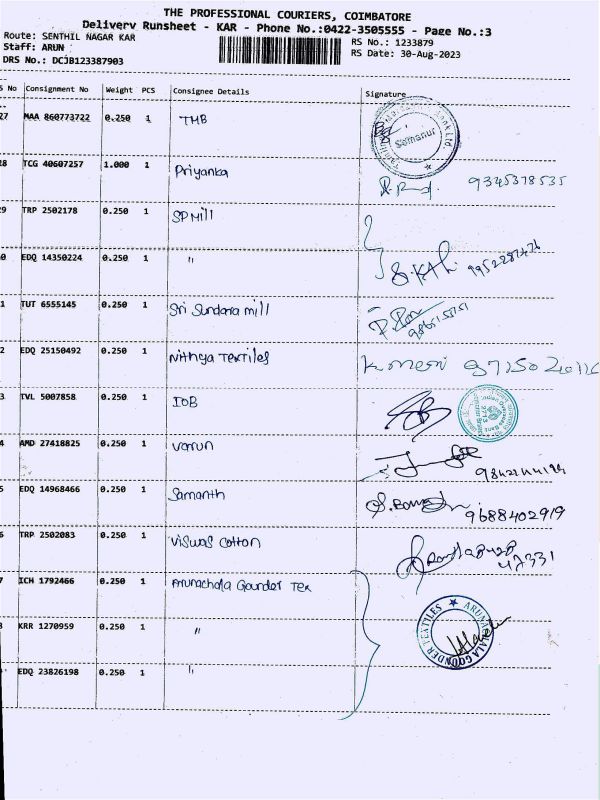 THE PROFESSIONAL COURIERS, COIMBATORE
Delivery Runsheet - KAR - Phone No.:0422-3505555 - Page No.:3
Route: SENTHIL NAGAR KAR RS No.: 1233879
Staff: ARUN RS Date: 30-Aug-2023
DRS No.: DCJB123387903
S No Consignment No Weight PCS Consignee Details Signature
27 MAA 860773722 0.250 1 TMB Somanur
28 TCG 40607257 1.000 1 Priyanka 9345378535
29 TRP 2502178 0.250 1 SP Mill
0 EDQ 14350224 0.250 1 "
1 TUT 6555145 0.250 1 Sri Sundara mill
2 EDQ 25150492 0.250 1 Nithya Textiles
3 TVL 5007858 0.250 1 IOB
4 AMD 27418825 0.250 1 Varun
5 EDQ 14968466 0.250 1 Samanth 9688402919
6 TRP 2502083 0.250 1 Viswas Cotton
7 ICH 1792466 0.250 1 Arunachala Gounder Tex
KRR 1270959 0.250 1 " ARUNACHALA GOUNDER TEXTILES
EDQ 23826198 0.250 1 "